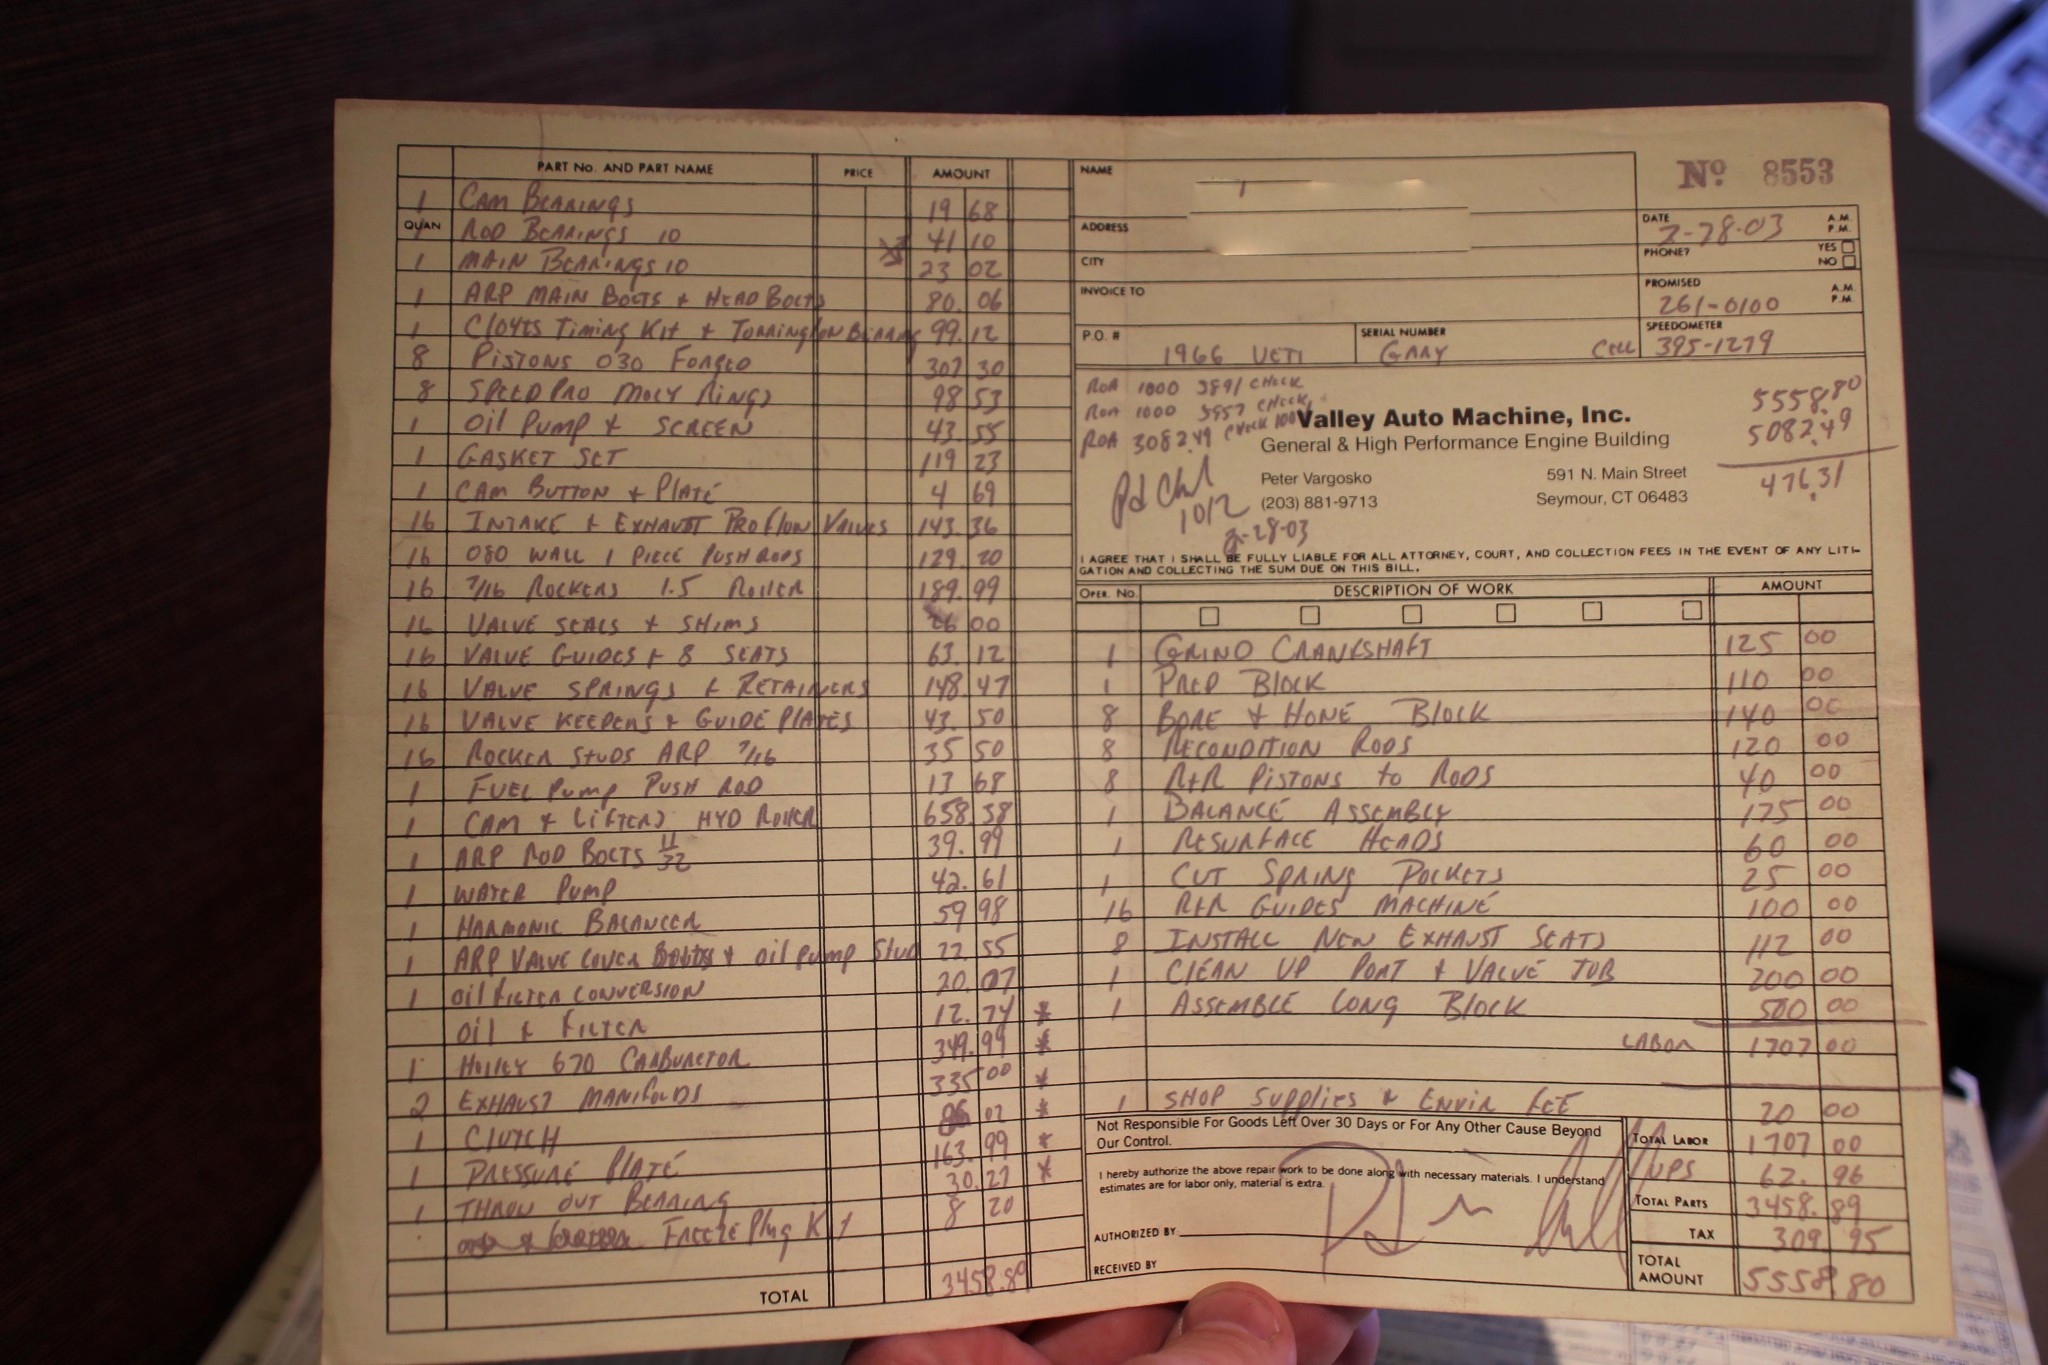 PART No. AND PART NAME PRICE AMOUNT
1 CAM BEARINGS 19 68
QUAN
1 ROD BEARINGS 10 41 10
1 MAIN BEARINGS 10 23 02
1 ARP MAIN BOLTS & HEAD BOLTS 80.06
1 CLOYES TIMING KIT & TORRINGTON BEARING 99.12
8 PISTONS 030 FORGED 307 30
8 SPEED PRO MOLY RINGS 98 53
1 OIL PUMP & SCREEN 43.55
1 GASKET SET 119 23
1 CAM BUTTON & PLATE 4 69
16 INTAKE & EXHAUST PROFLOW VALVES 143.36
16 080 WALL 1 PIECE PUSH RODS 129.20
16 7/16 ROCKERS 1.5 ROLLER 189.99
16 VALVE SEALS & SHIMS 26 00
16 VALVE GUIDES & 8 SEATS 63.12
16 VALVE SPRINGS & RETAINERS 148.47
16 VALVE KEEPERS & GUIDE PLATES 43.50
16 ROCKER STUDS ARP 7/16 35 50
1 FUEL PUMP PUSH ROD 13 68
1 CAM & LIFTERS HYD ROLLER 658.38
1 ARP ROD BOLTS 11/32 39.99
1 WATER PUMP 42.61
1 HARMONIC BALANCER 59 98
1 ARP VALVE COVER BOLTS & OIL PUMP STUD 22.55
1 OIL FILTER CONVERSION 20.07
OIL & FILTER 12.74 *
1 HOLLEY 670 CARBURETOR 349.99 *
2 EXHAUST MANIFOLDS 335 00 *
1 CLUTCH 02 *
1 PRESSURE PLATE 163.99 *
1 THROW OUT BEARING 30.27 *
FREEZE PLUG KIT 8 20
TOTAL 3458.89
NAME
No 8553
ADDRESS
DATE 2-28-03 A.M. P.M.
CITY
PHONE? YES NO
INVOICE TO
PROMISED 261-0100 A.M. P.M.
P.O. # 1966 VETT
SERIAL NUMBER GARY CELL
SPEEDOMETER 395-1279
ROA 1000 3891 CHECK
ROA 1000 3957 CHECK
ROA 3082.49 CHECK
5558.80
5082.49
476.31
Valley Auto Machine, Inc.
General & High Performance Engine Building
Peter Vargosko 591 N. Main Street
(203) 881-9713 Seymour, CT 06483
1012
2-28-03
I AGREE THAT I SHALL BE FULLY LIABLE FOR ALL ATTORNEY, COURT, AND COLLECTION FEES IN THE EVENT OF ANY LITI-
GATION AND COLLECTING THE SUM DUE ON THIS BILL.
OPER. NO. DESCRIPTION OF WORK AMOUNT
1 GRIND CRANKSHAFT 125 00
1 PREP BLOCK 110 00
8 BORE & HONE BLOCK 140 00
8 RECONDITION RODS 120 00
8 R&R PISTONS to RODS 40 00
1 BALANCE ASSEMBLY 175 00
1 RESURFACE HEADS 60 00
1 CUT SPRING POCKETS 25 00
16 R&R GUIDES MACHINE 100 00
8 INSTALL NEW EXHAUST SEATS 112 00
1 CLEAN UP PORT & VALVE JOB 200 00
1 ASSEMBLE LONG BLOCK 500 00
LABOR 1707 00
1 SHOP SUPPLIES & ENVIR FEE 20 00
Not Responsible For Goods Left Over 30 Days or For Any Other Cause Beyond
Our Control.
I hereby authorize the above repair work to be done along with necessary materials. I understand
estimates are for labor only, material is extra.
AUTHORIZED BY
RECEIVED BY
TOTAL LABOR 1707 00
UPS 62.96
TOTAL PARTS 3458.89
TAX 309.95
TOTAL AMOUNT 5558.80